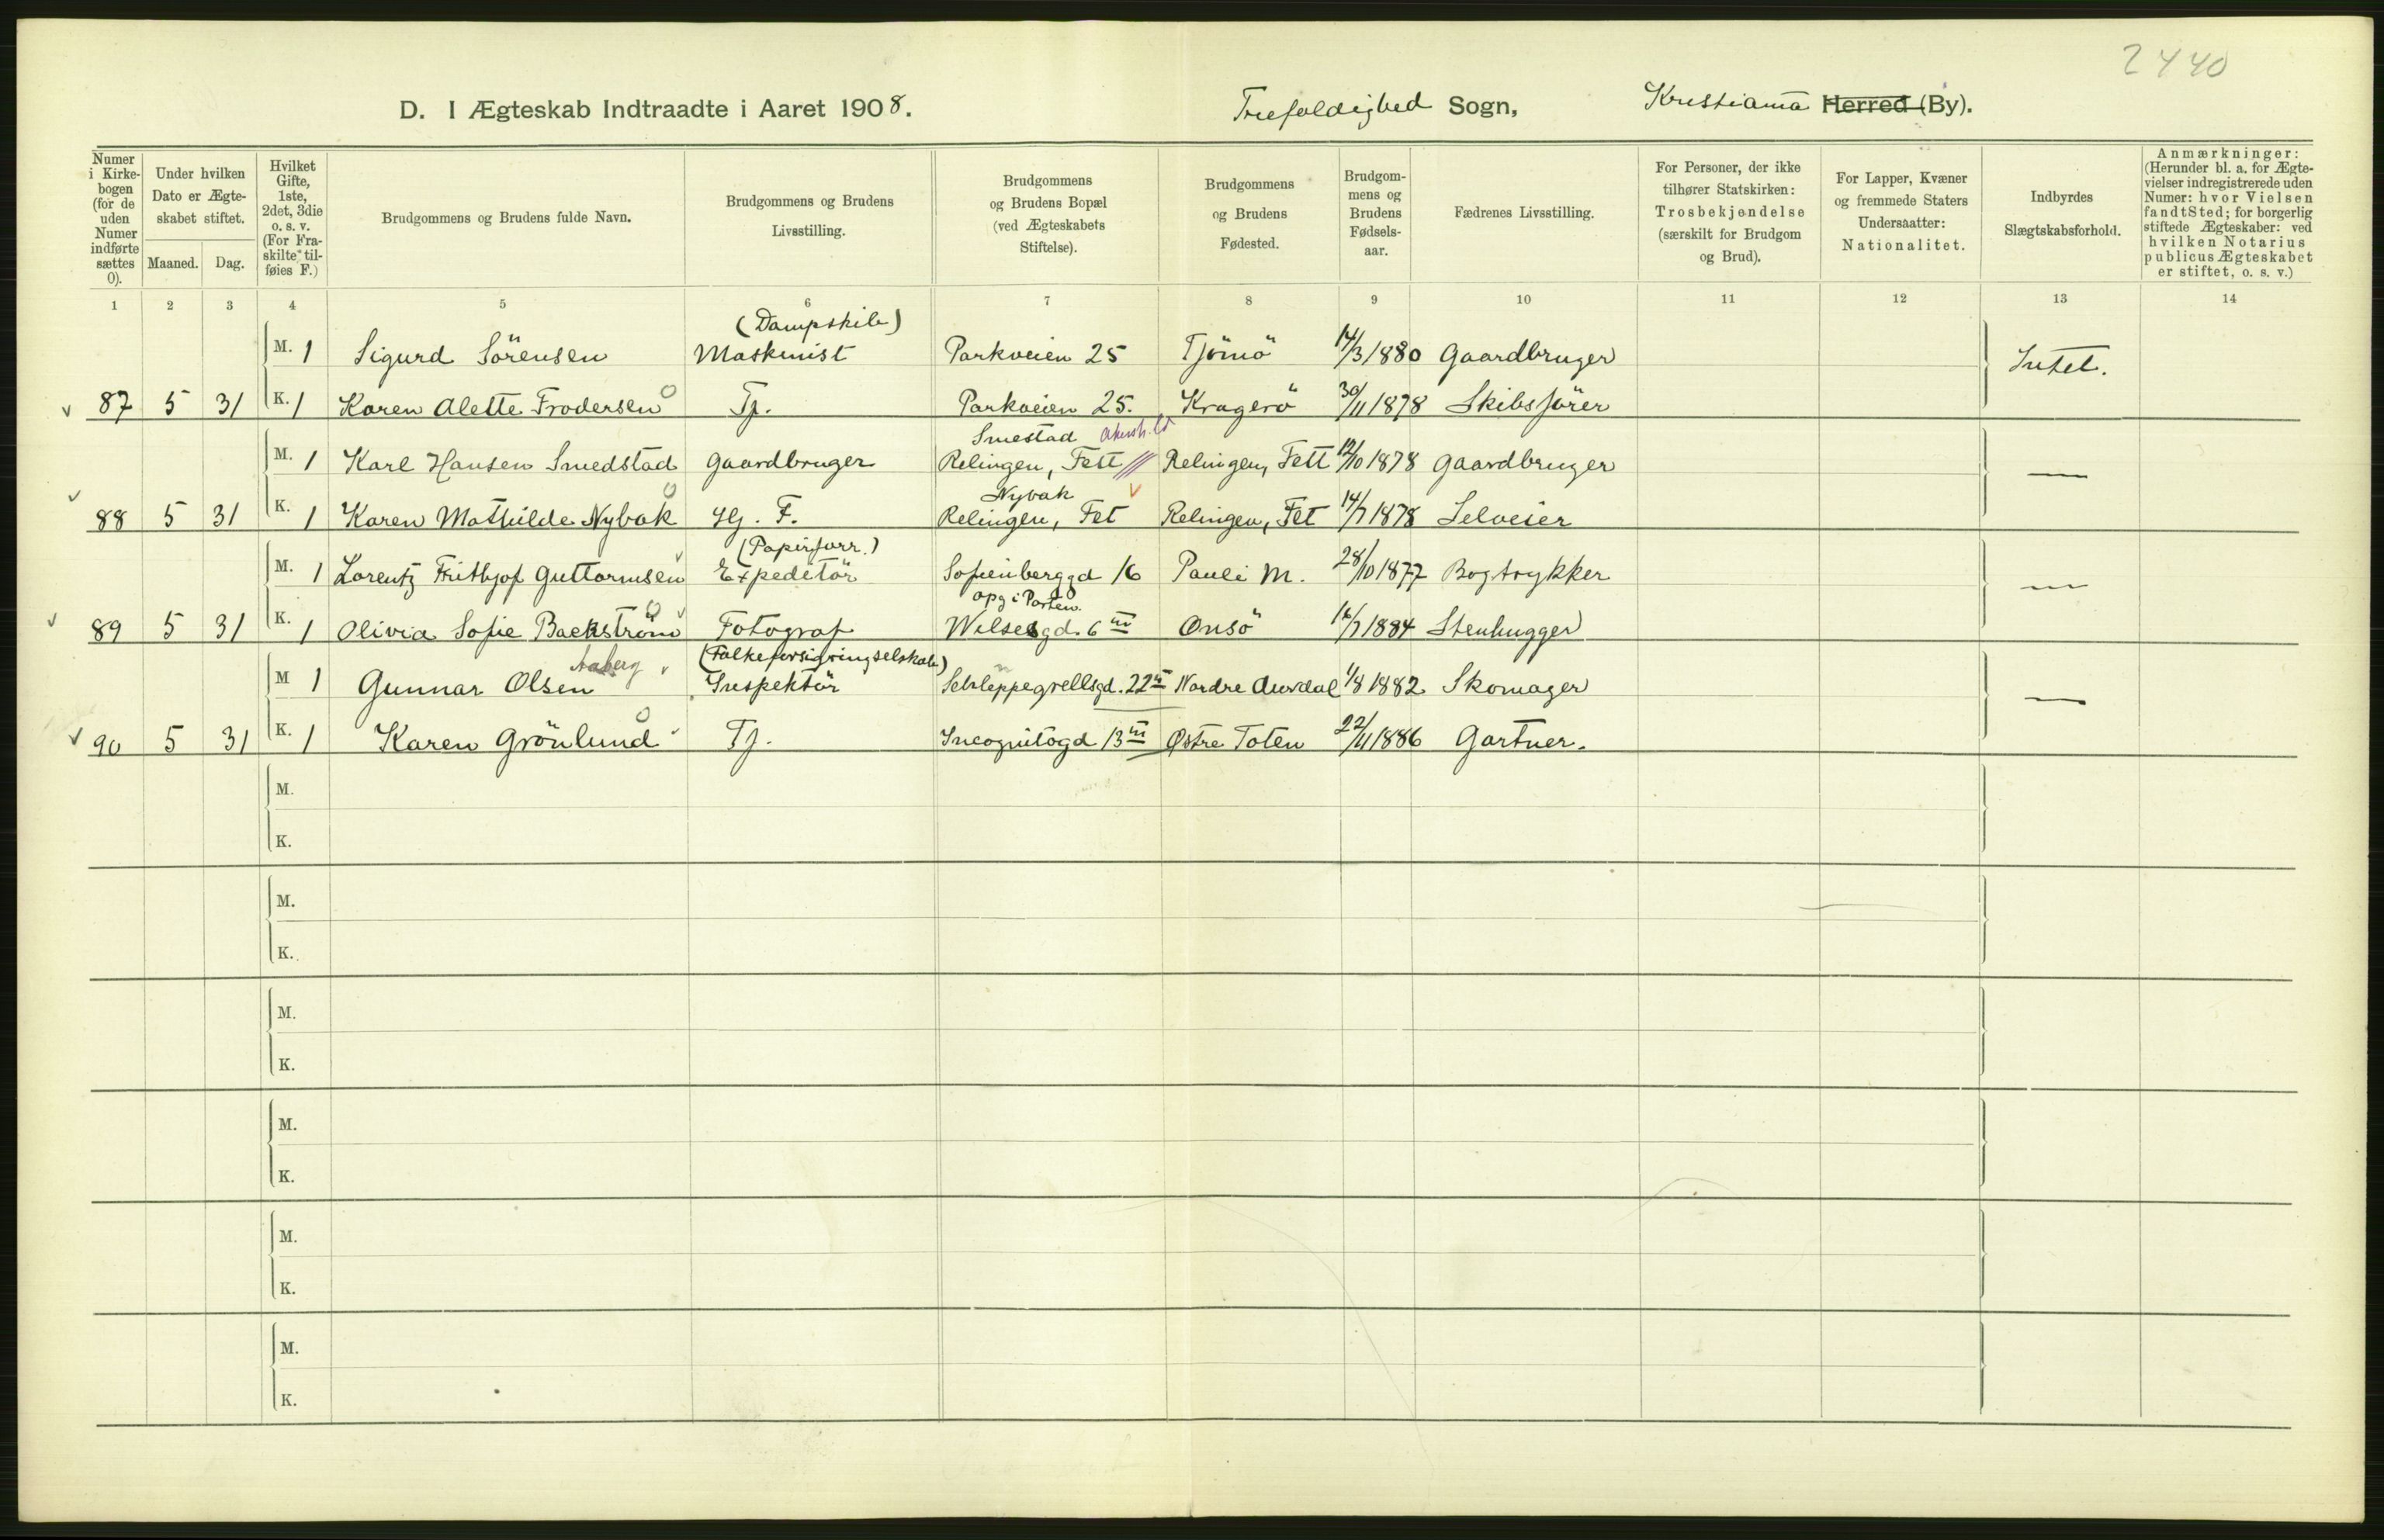 2440
D. I Ægteskab Indtraadte i Aaret 1908. Trefoldighed Sogn, Kristiania Herred (By).
Numer i Kirkebogen (for de uden Numer indførte sættes 0).
Under hvilken Dato er Ægteskabet stiftet.
Maaned. Dag.
Hvilket Gifte, 1ste, 2det, 3die o. s. v. (For Fraskilte tilføies F.)
Brudgommens og Brudens fulde Navn.
Brudgommens og Brudens Livsstilling.
Brudgommens og Brudens Bopæl (ved Ægteskabets Stiftelse).
Brudgommens og Brudens Fødested.
Brudgommens og Brudens Fødselsaar.
Fædrenes Livsstilling.
For Personer, der ikke tilhører Statskirken: Trosbekjendelse (særskilt for Brudgom og Brud).
For Lapper, Kvæner og fremmede Staters Undersaatter: Nationalitet.
Indbyrdes Slægtskabsforhold.
Anmærkninger: (Herunder bl. a. for Ægtevielser indregistrerede uden Numer: hvor Vielsen fandt Sted; for borgerlig stiftede Ægteskaber: ved hvilken Notarius publicus Ægteskabet er stiftet, o. s. v.)
1 2 3 4 5 6 7 8 9 10 11 12 13 14
(Dampskib)
M. 1 Sigurd Sörensen Maskinist Parkveien 25 Tjömö 14/3 1880 Gaardbruger Intet.
87 5 31 K. 1 Karen Alette Frodersen Tj. Parkveien 25. Kragerö 30/11 1878 Skibsförer
Smestad
M. 1 Karl Hansen Smedstad Gaardbruger Relingen, Fett Relingen, Fett 12/10 1878 Gaardbruger —
Nybak
88 5 31 K. 1 Karen Mathilde Nybak Hj. F. Relingen, Fet Relingen, Fet 14/7 1878 Selveier
(Papirforr.)
M. 1 Lorentz Frithjof Guttormsen Expeditör Sofienberggd 16 Pauli M. 28/10 1877 Bogtrykker —
opg i Porten.
89 5 31 K. 1 Olivia Sofie Backström Fotograf Wilsesgd. 6 III Onsö 16/7 1884 Stenhugger
Aaberg (Folkeforsigringselskab)
M 1 Gunnar Olsen Inspektör Schleppegrellsgd. 22 Nordre Aurdal 1/8 1882 Skomager —
90 5 31 K. 1 Karen Grönlund Tj. Incognitogd 13 III Østre Toten 22/11 1886 Gartner.
M.
K.
M.
K.
M.
K.
M.
K.
M.
K.
M.
K.